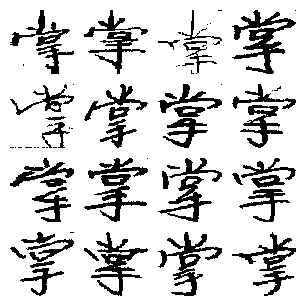 掌掌掌掌
掌掌掌掌
掌掌掌掌
掌掌掌掌